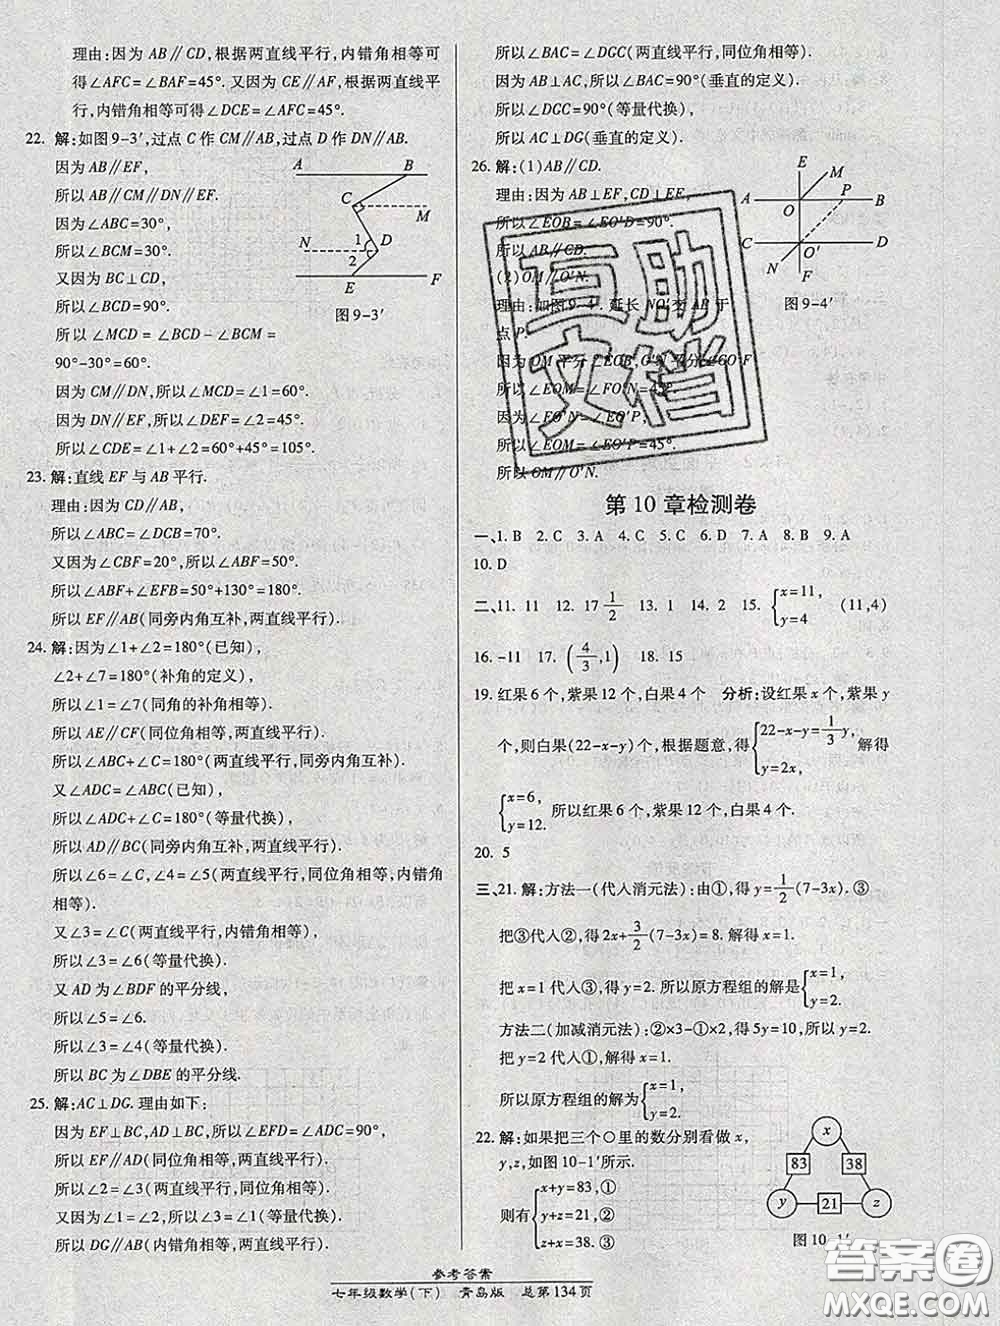 理由:因为 AB∥CD,根据两直线平行,内错角相等可
得∠AFC=∠BAF=45°. 又因为 CE∥AF,根据两直线平
行,内错角相等可得∠DCE=∠AFC=45°.
22. 解:如图 9-3′,过点 C 作 CM∥AB,过点 D 作 DN∥AB.
因为 AB∥EF,
所以 AB∥CM∥DN∥EF.
因为∠ABC=30°,
所以∠BCM=30°.
又因为 BC⊥CD,
所以∠BCD=90°.
所以∠MCD=∠BCD-∠BCM=
90°-30°=60°.
因为 CM∥DN,所以∠MCD=∠1=60°.
因为 DN∥EF,所以∠DEF=∠2=45°.
所以∠CDE=∠1+∠2=60°+45°=105°.
A B
C M
1
N D
2
E F
图 9-3′
23. 解:直线 EF 与 AB 平行.
理由:因为 CD∥AB,
所以∠ABC=∠DCB=70°.
又因为∠CBF=20°,所以∠ABF=50°.
所以∠ABF+∠EFB=50°+130°=180°.
所以 EF∥AB(同旁内角互补,两直线平行).
24. 解:因为∠1+∠2=180°(已知),
∠2+∠7=180°(补角的定义),
所以∠1=∠7(同角的补角相等).
所以 AE∥CF(同位角相等,两直线平行).
所以∠ABC+∠C=180°(两直线平行,同旁内角互补).
又∠ADC=∠ABC(已知),
所以∠ADC+∠C=180°(等量代换),
所以 AD∥BC(同旁内角互补,两直线平行).
所以∠6=∠C,∠4=∠5(两直线平行,同位角相等,内错角
相等).
又∠3=∠C(两直线平行,内错角相等),
所以∠3=∠6(等量代换).
又 AD 为∠BDF 的平分线,
所以∠5=∠6.
所以∠3=∠4(等量代换).
所以 BC 为∠DBE 的平分线.
25. 解:AC⊥DG. 理由如下:
因为 EF⊥BC,AD⊥BC,所以∠EFD=∠ADC=90°,
所以 EF∥AD(同位角相等,两直线平行),
所以∠2=∠3(两直线平行,同位角相等).
又因为∠1=∠2,所以∠1=∠3(等量代换),
所以 DG∥AB(内错角相等,两直线平行),
所以∠BAC=∠DGC(两直线平行,同位角相等).
因为 AB⊥AC,所以∠BAC=90°(垂直的定义).
所以∠DGC=90°(等量代换),
所以 AC⊥DG(垂直的定义).
26. 解:(1)AB∥CD.
理由:因为 AB⊥EF,CD⊥EF,
所以∠EOB=∠EO′D=90°.
所以 AB∥CD.
(2)OM∥O′N.
理由:如图 9-4′,延长 NO′交 AB 于
点 P.
因为 OM 平分∠EOB,O′N 平分∠CO′F,
所以∠EOM=∠FO′N=45°.
因为∠FO′N=∠EO′P,
所以∠EOM=∠EO′P=45°.
所以 OM∥O′N.
E M
A P B
O
C D
O′
N F
图 9-4′
互助
文档
第 10 章检测卷
一、1. B 2. C 3. A 4. C 5. C 6. D 7. A 8. B 9. A
10. D
二、11. 11 12. 17 1/2 13. 1 14. 2 15. {x=11, y=4 (11,4)
16. -11 17. (4/3,1) 18. 15
19. 红果 6 个,紫果 12 个,白果 4 个 分析:设红果 x 个,紫果 y
个,则白果(22-x-y)个,根据题意,得{22-x-y=1/3 y, y=2x, 解得
{x=6, y=12. 所以红果 6 个,紫果 12 个,白果 4 个.
20. 5
三、21. 解:方法一(代人消元法):由①,得 y=1/2(7-3x). ③
把③代人②,得 2x+3/2(7-3x)=8. 解得 x=1.
把 x=1 代人③,得 y=2. 所以原方程组的解是{x=1, y=2.
方法二(加减消元法):②×3-①×2,得 5y=10,所以 y=2.
把 y=2 代人①,解得 x=1.
所以原方程组的解为{x=1, y=2.
22. 解:如果把三个○里的数分别看做 x,
y,z,如图 10-1′所示.
则有{x+y=83,① y+z=21,② z+x=38. ③
x
83 38
y 21 z
图 10-1′
参考答案
七年级数学(下) 青岛版 总第134页
答案圈
MXQE.COM